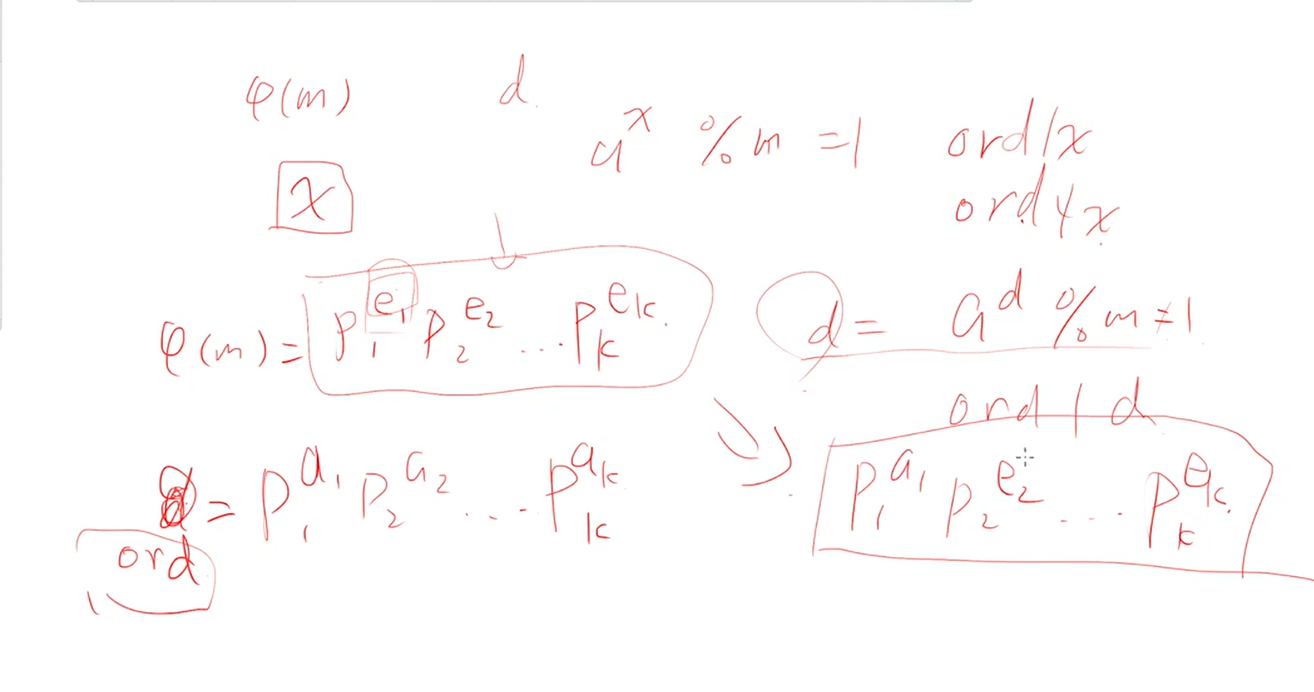 φ(m) d.
a^x % m = 1 ord | x
x ord ∤ x
φ(m) = p_1^{e_1} p_2^{e_2} ... p_k^{e_k}. d = a^d % m ≠ 1
ord | d
ord = p_1^{a_1} p_2^{a_2} ... p_k^{a_k} p_1^{a_1} p_2^{e_2} ... p_k^{e_k}.